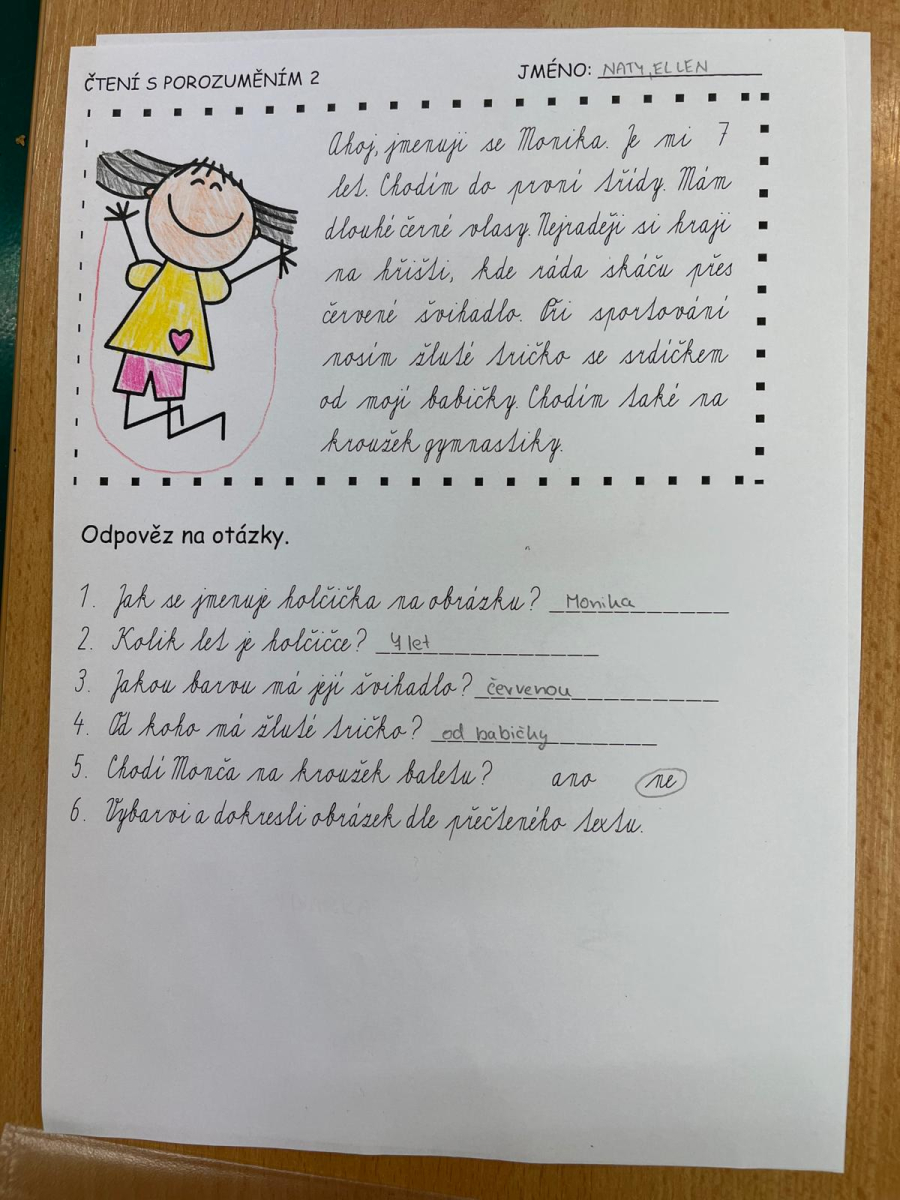 ČTENÍ S POROZUMĚNÍM 2
JMÉNO: NATY, ELLEN
Ahoj, jmenuji se Monika. Je mi 7
let. Chodím do první třídy. Mám
dlouhé černé vlasy. Nejraději si hraji
na hřišti, kde ráda skáču přes
červené švihadlo. Při sportování
nosím žluté tričko se srdíčkem
od mojí babičky. Chodím také na
kroužek gymnastiky.
Odpověz na otázky.
1. Jak se jmenuje holčička na obrázku? Monika
2. Kolik let je holčičce? 7 let
3. Jakou barvu má její švihadlo? červenou
4. Od koho má žluté tričko? od babičky
5. Chodí Monča na kroužek baletu? ano ne
6. Vybarvi a dokresli obrázek dle přečteného textu.